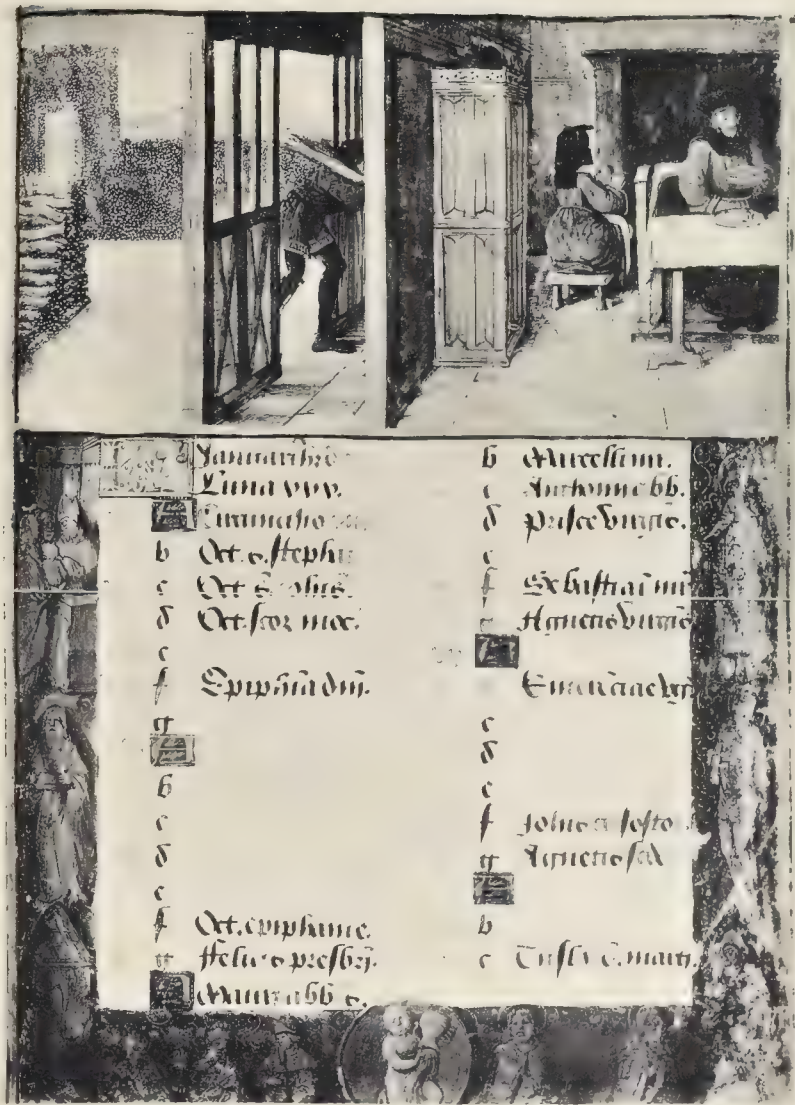 Januarius
Luna xxx.
A Circumcisio
b Oct. s. steph
c Oct s. Johis.
d Oct. scor inoc.
e
f Epiphia dni.
g
A
b
c
d
e
f Oct. epiphanie.
g Felicis presbri.
A Mauri abb
b Marcellini.
c Anthonii abb.
d Prisce virgis.
e
f Sebastiai
g Agnetis virgis
A
Emerenciae
c
d
e
f
g Agnetis scd
A
b
c